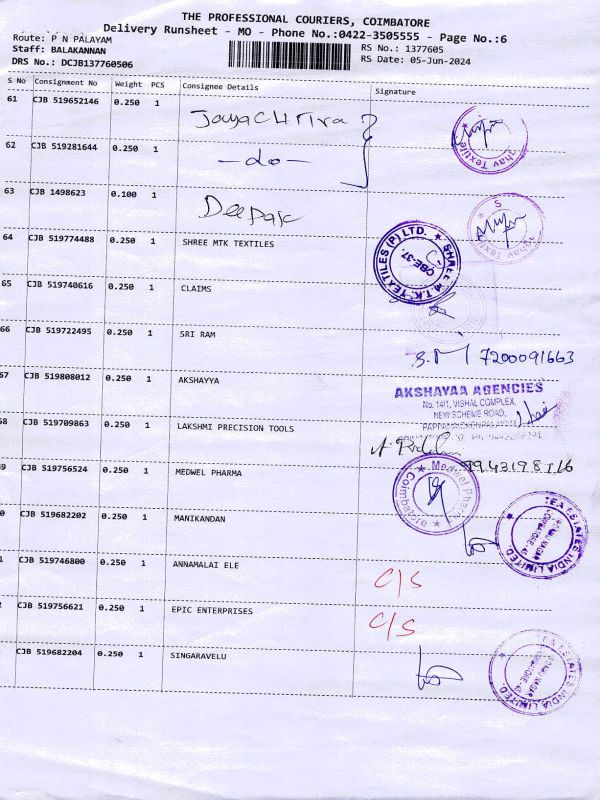 THE PROFESSIONAL COURIERS, COIMBATORE
Delivery Runsheet - MO - Phone No.:0422-3505555 - Page No.:6
Route: P N PALAYAM
Staff: BALAKANNAN
DRS No.: DCJB137760506
RS No.: 1377605
RS Date: 05-Jun-2024
S No Consignment No Weight PCS Consignee Details Signature
61 CJB 519652146 0.250 1 Jayachitra
62 CJB 519281644 0.250 1 -do-
63 CJB 1498623 0.100 1 Deepak
64 CJB 519774488 0.250 1 SHREE MTK TEXTILES
SHREE M.T.K. TEXTILES (P) LTD. CBE-37.
65 CJB 519740616 0.250 1 CLAIMS
66 CJB 519722495 0.250 1 SRI RAM 7200091663
67 CJB 519808012 0.250 1 AKSHAYYA
AKSHAYAA AGENCIES
No. 14/1, VISHAL COMPLEX,
NEW SCHEME ROAD,
68 CJB 519709863 0.250 1 LAKSHMI PRECISION TOOLS
69 CJB 519756524 0.250 1 MEDWEL PHARMA
Medwel Pharma Coimbatore
0 CJB 519682202 0.250 1 MANIKANDAN
TEA ESTATES INDIA LIMITED
1 CJB 519746800 0.250 1 ANNAMALAI ELE C/S
2 CJB 519756621 0.250 1 EPIC ENTERPRISES C/S
CJB 519682204 0.250 1 SINGARAVELU
TEA ESTATES INDIA LIMITED